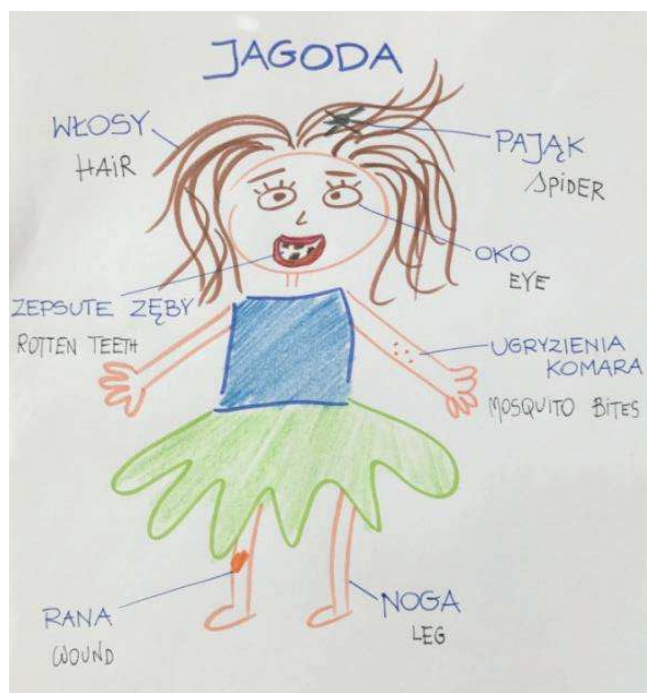 JAGODA
WŁOSY
HAIR
PAJĄK
SPIDER
OKO
EYE
ZEPSUTE ZĘBY
ROTTEN TEETH
UGRYZIENIA
KOMARA
MOSQUITO BITES
RANA
WOUND
NOGA
LEG